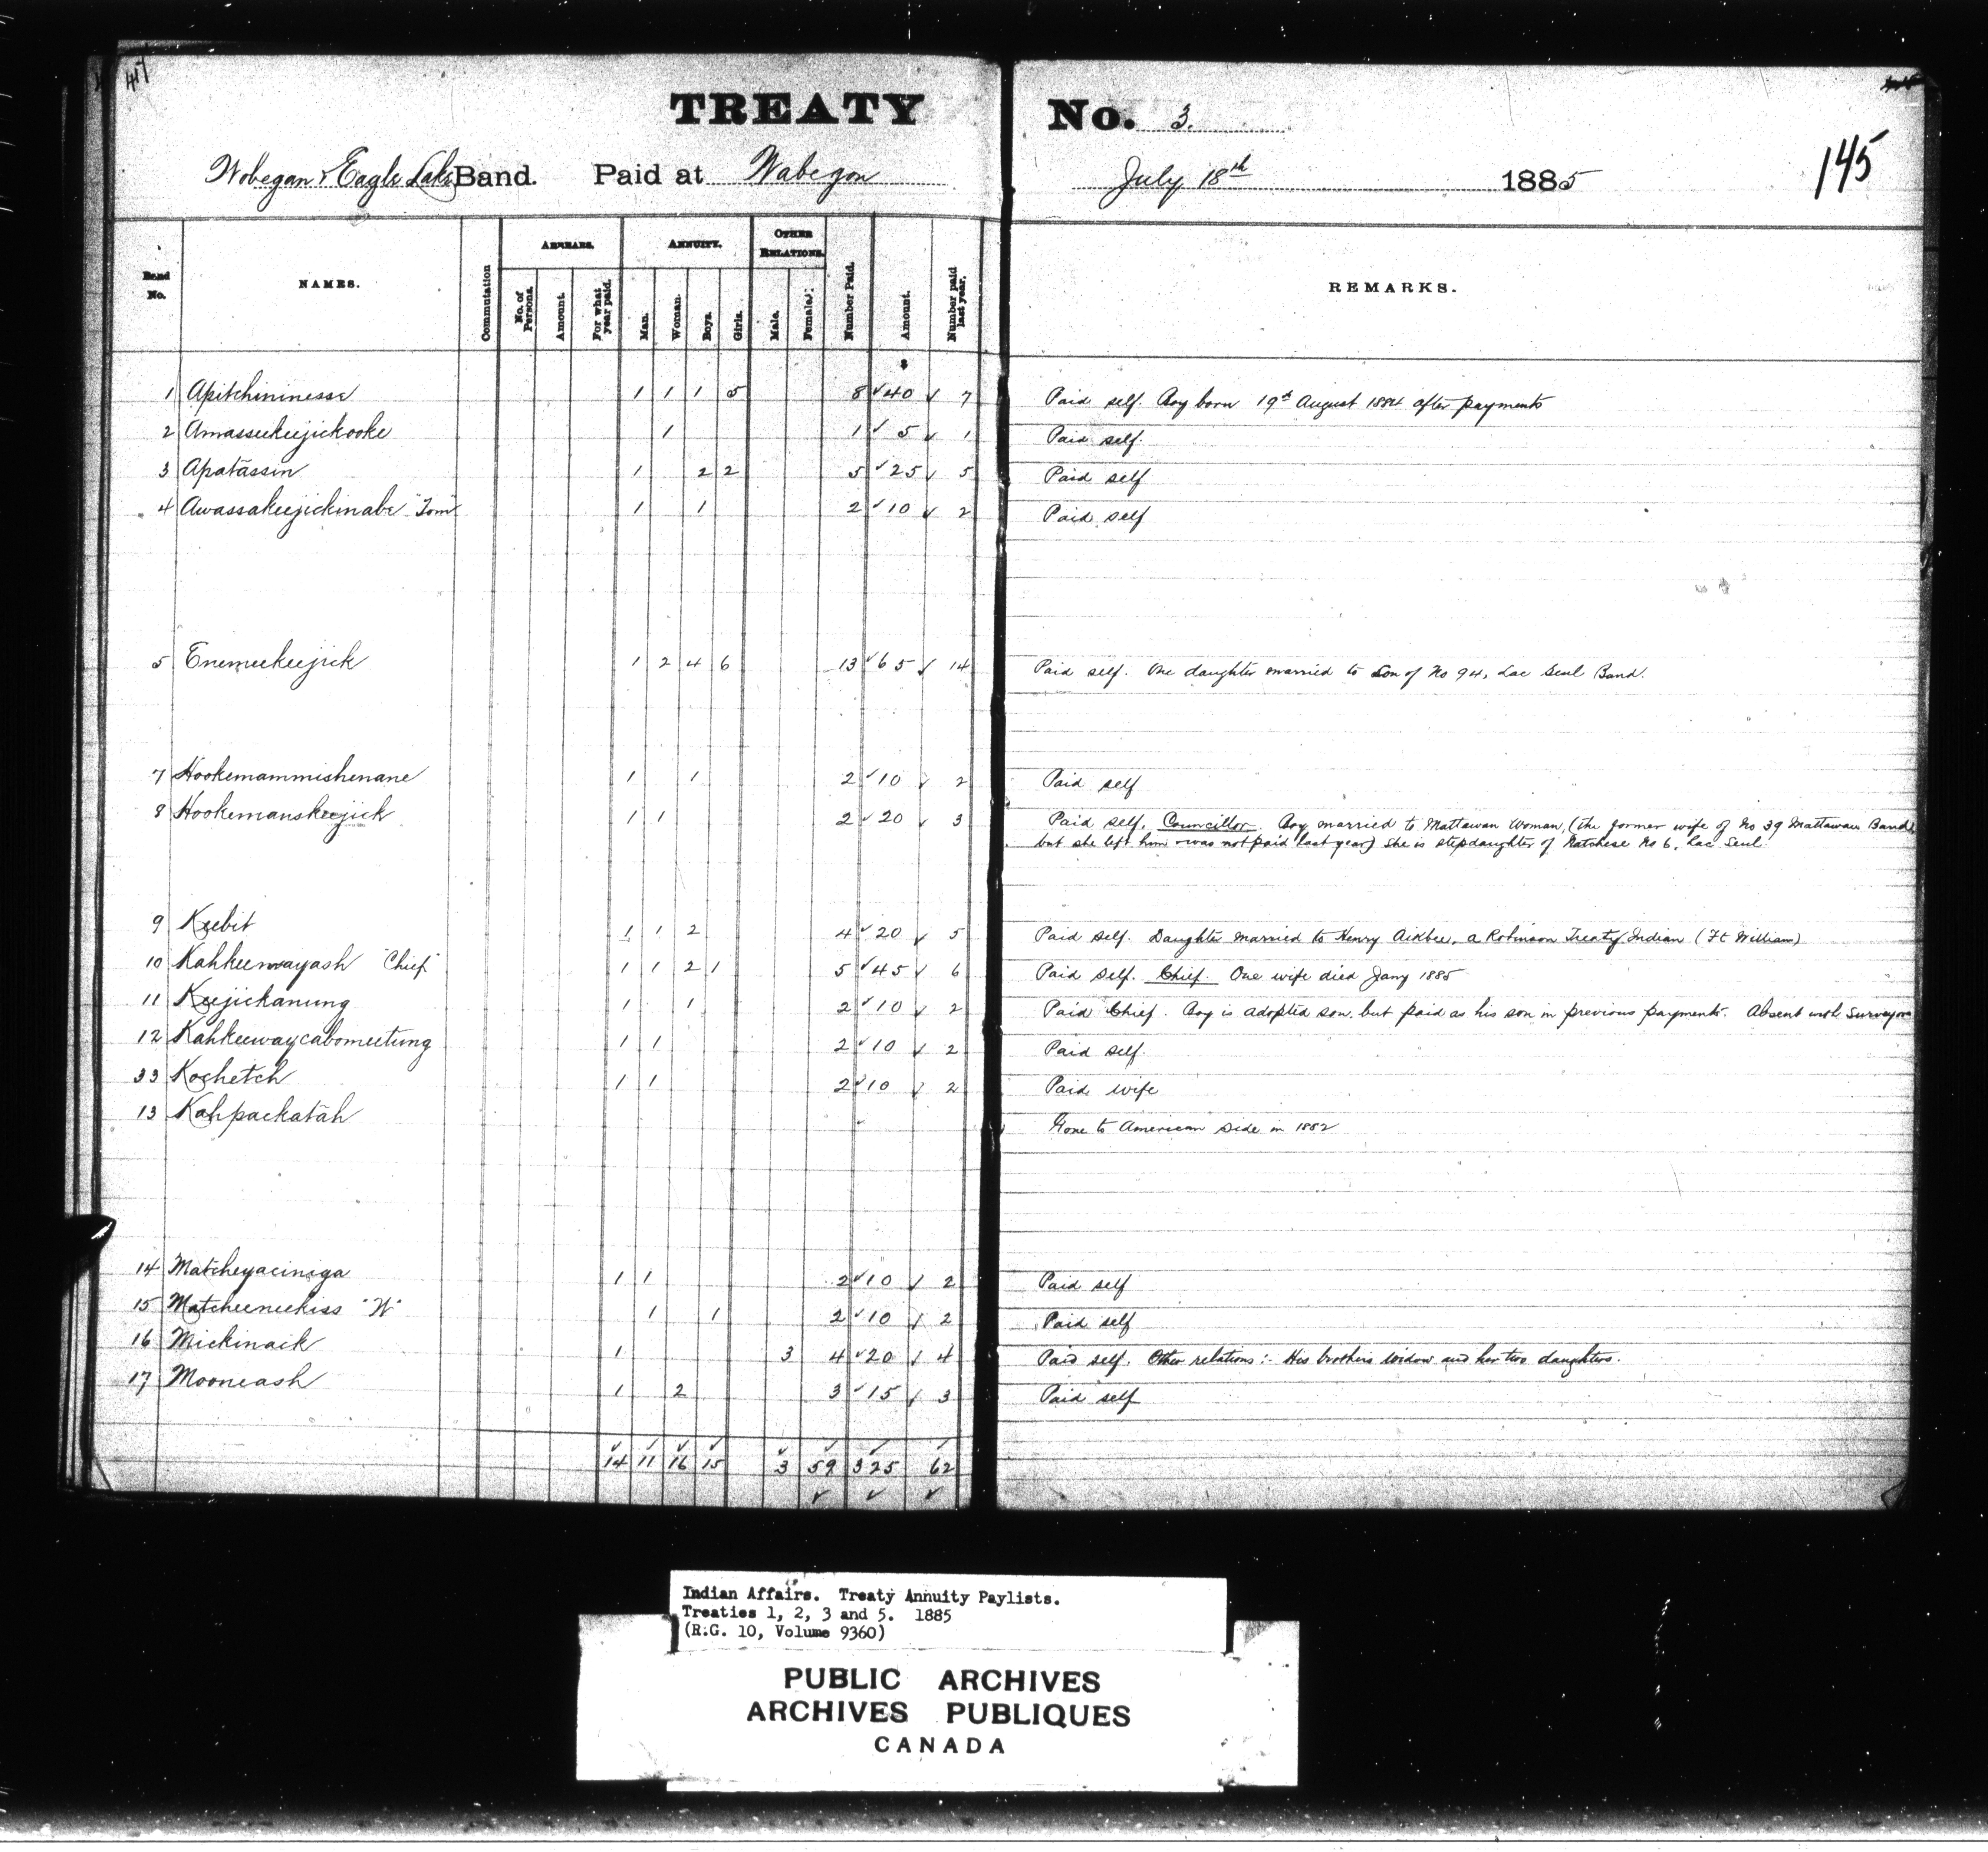 417
TREATY No. 3.
145
Wobegan & Eagle Lake Band. Paid at Wabegon July 18th 1885
Band No. NAMES. Commutation ARREARS. No. of Persons. Amount. For what year paid. ANNUITY. Man. Woman. Boys. Girls. OTHER RELATIONS. Male. Female. Number Paid. Amount. Number paid last year. REMARKS.
$
1 Apitchininesse 1 1 1 5 8 ✓ 40 ✓ 7 Paid self. Boy born 19th August 1884 after payments
2 Amasseekeejickooke 1 1 ✓ 5 ✓ 1 Paid self.
3 Apatassin 1 2 2 5 ✓ 25 ✓ 5 Paid self
4 Awassakeejickinabe "Tom" 1 1 2 ✓ 10 ✓ 2 Paid self
5 Enemeekeejick 1 2 4 6 13 ✓ 65 ✓ 14 Paid self. One daughter married to Son of No 94, Lac Seul Band.
7 Hookemammishenane 1 1 2 ✓ 10 ✓ 2 Paid self
8 Hookemanskeejick 1 1 2 ✓ 20 ✓ 3 Paid self, Councillor. Boy married to Mattawan Woman, (the former wife of No 39 Mattawan Band,
but she left him & was not paid last year) She is stepdaughter of Natchese No 6, Lac Seul.
9 Keebit 1 1 2 4 ✓ 20 ✓ 5 Paid self. Daughter married to Henry Aikbee, a Robinson Treaty Indian (Ft William)
10 Kahkeewayash "Chief" 1 1 2 1 5 ✓ 45 ✓ 6 Paid self. Chief. One wife died Jany 1885
11 Keejickanung 1 1 2 ✓ 10 ✓ 2 Paid Chief. Boy is adopted son, but paid as his son in previous payments. Absent with Surveyors
12 Kahkeewaycabomeetung 1 1 2 ✓ 10 ✓ 2 Paid self.
33 Kochetch 1 1 2 ✓ 10 ✓ 2 Paid wife
13 Kahpackatah Gone to American side in 1882
14 Matcheyacinega 1 1 2 ✓ 10 ✓ 2 Paid self
15 Matcheeneekiss "W" 1 1 2 ✓ 10 ✓ 2 Paid self
16 Mickinack 1 3 4 ✓ 20 ✓ 4 Paid self. Other relations:- His brothers widow and her two daughters.
17 Mooneash 1 2 3 ✓ 15 ✓ 3 Paid self
✓ ✓ ✓ ✓ ✓ ✓ ✓ ✓
14 11 16 15 3 59 325 62
✓ ✓ ✓
Indian Affairs. Treaty Annuity Paylists.
Treaties 1, 2, 3 and 5. 1885
(R.G. 10, Volume 9360)
PUBLIC ARCHIVES
ARCHIVES PUBLIQUES
CANADA